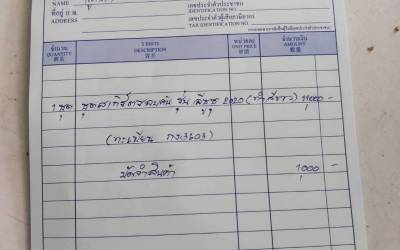 NAME
ที่อยู่
ADDRESS
เลขประจำตัวประชาชน
IDENTIFICATION NO.
เลขประจำตัวผู้เสียภาษีอากร
TAX IDENTIFICATION NO.
จำนวน รายการ หน่วยละ จำนวนเงิน
QUANTITY DESCRIPTION UNIT PRICE AMOUNT
數量 貨名 單價 銀額
1 ชุด ชุดสเกิร์ตรอบคัน รุ่น มีซู 2020 (ทำสีขาว) 11,000 -
(ทะเบียน กร3603)
มัดจำสินค้า 1,000 -